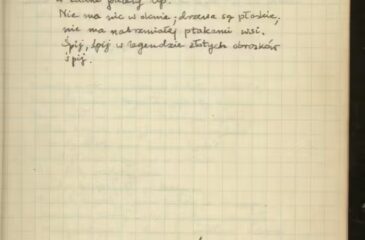 Nie ma nic w oknie; drzewa są płaskie,
nie ma nabrzmiałej ptakami wsi.
Śpij, śpij w legendzie złotych obrazków
śpij.